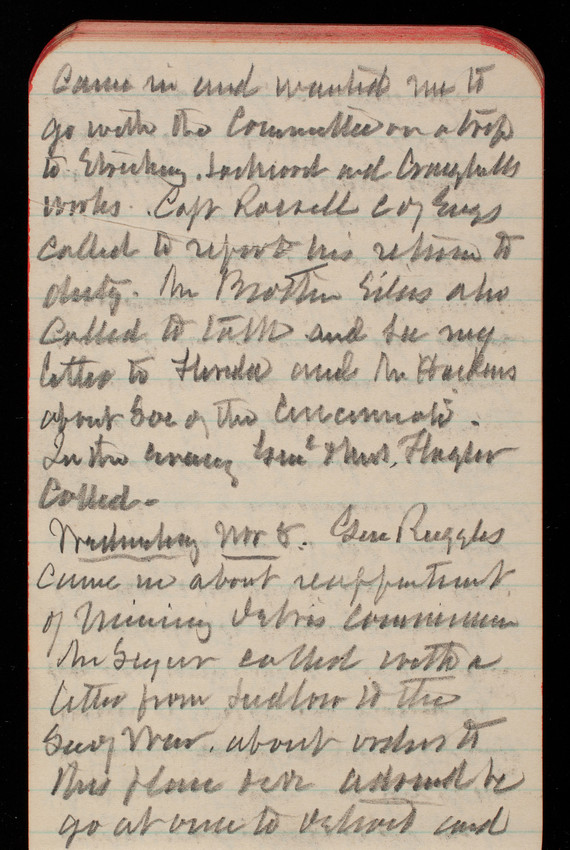 Came in and wanted me to
go with the Committee on a trip
to Stricking. Lockwood and Craighills
works. Capt Rossell C of Engs
called to report his return to
duty. Mr Brother Silas also
Called to talk and see my
letter to Florida and Mr Harkins
about Soc of the Cincinnati.
In the evening Genl & Mrs. Flagler
Called-
Wednesday Nov 5. Gen Ruggles
Came in about reappointment
of Mining Debris Commission
Mr Seguer called with a
letter from Ludlow to the
Sec of War. about orders to
this place. advised he
go at once to Detroit and